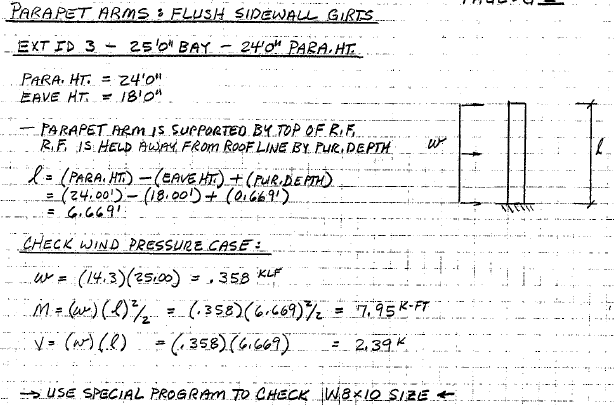 PARAPET ARMS : FLUSH SIDEWALL GIRTS
EXT ID 3 - 25'0" BAY - 24'0" PARA. HT.
PARA. HT. = 24'0"
EAVE HT. = 18'0"
- PARAPET ARM IS SUPPORTED BY TOP OF R.F.
R.F. IS HELD AWAY FROM ROOF LINE BY PUR. DEPTH
w
l
l = (PARA. HT.) - (EAVE HT.) + (PUR. DEPTH)
= (24.00') - (18.00') + (0.669')
= 6.669'
CHECK WIND PRESSURE CASE :
w = (14.3)(25.00) = .358 KLF
M = (w)(l)²/2 = (.358)(6.669)²/2 = 7.95 K-FT
V = (w)(l) = (.358)(6.669) = 2.39 K
→ USE SPECIAL PROGRAM TO CHECK W8×10 SIZE ←